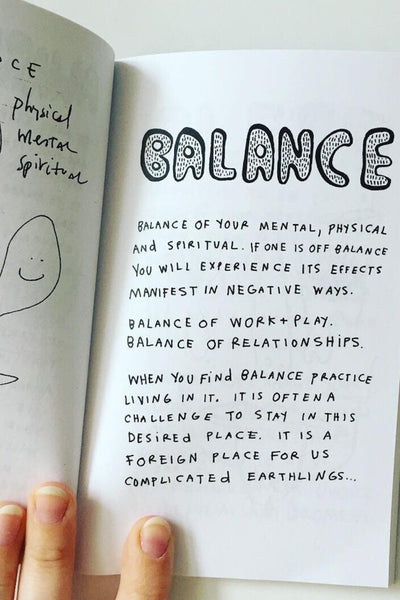 CE
physical
mental
spiritual
BALANCE
BALANCE OF YOUR MENTAL, PHYSICAL
AND SPIRITUAL. IF ONE IS OFF BALANCE
YOU WILL EXPERIENCE ITS EFFECTS
MANIFEST IN NEGATIVE WAYS.
BALANCE OF WORK + PLAY.
BALANCE OF RELATIONSHIPS.
WHEN YOU FIND BALANCE PRACTICE
LIVING IN IT. IT IS OFTEN A
CHALLENGE TO STAY IN THIS
DESIRED PLACE. IT IS A
FOREIGN PLACE FOR US
COMPLICATED EARTHLINGS...